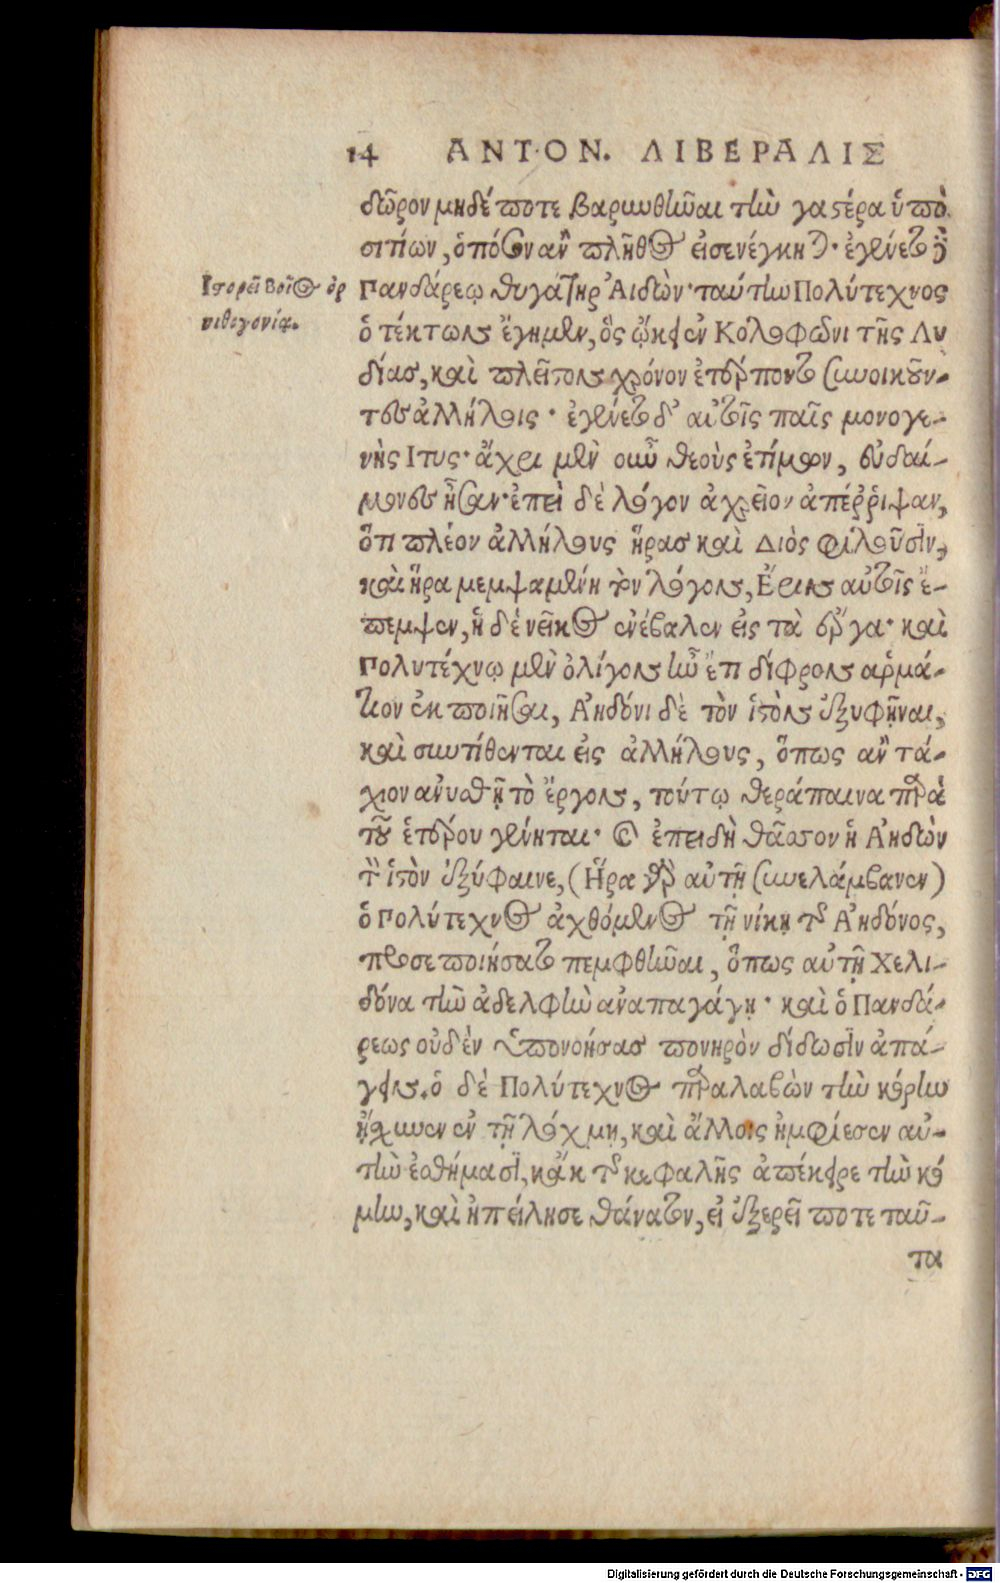 14 ΑΝΤΟΝ. ΛΙΒΕΡΑΛΙΣ
δῶρον μηδέποτε βαρυνθῆναι τὴν γαστέρα ὑπὸ
σιτίων, ὁπόσον ἂν πλῆθος εἰσενέγκηται· ἐγένετο
Ἱστορεῖ Βοῖος ὀρ
νιθογονίᾳ.
Πανδάρεῳ θυγάτηρ Ἀιδὼν· ταύτην Πολύτεχνος
ὁ τέκτων ἔγημεν, ὃς ᾤκει ἐν Κολοφῶνι τῆς Λυ
δίας, καὶ πλεῖστον χρόνον ἐτέρποντο συνοικοῦν-
τες ἀλλήλοις· ἐγένετο δ' αὐτοῖς παῖς μονογε-
νὴς Ιτυς· ἄχρι μὲν οὖν θεοὺς ἐτίμων, εὐδαί-
μονες ἦσαν· ἐπεὶ δὲ λόγον ἀχρεῖον ἀπέῤῥιψαν,
ὅτι πλέον ἀλλήλους ἥρας καὶ Διὸς φιλοῦσιν,
καὶ ἥρα μεμψαμένη τὸν λόγον, Ἔριν αὐτοῖς ἔ-
πεμψεν, ἡ δὲ νεῖκος ἐνέβαλεν εἰς τὰ ἔργα· καὶ
Πολυτέχνῳ μὲν ὀλίγον ἦν ἔτι δίφρον ἁρμά-
τιον ἐκποιῆσαι, Ἀηδόνι δὲ τὸν ἱστὸν ἐξυφῆναι,
καὶ συντίθενται εἰς ἀλλήλους, ὅπως ἂν τά-
χιον ἀνυσθῇ τὸ ἔργον, τούτῳ θεράπαινα παρὰ
τοῦ ἑτέρου γένηται· καὶ ἐπειδὴ θᾶσσον ἡ Ἀηδὼν
τὸν ἱστὸν ἐξύφαινε, (Ἥρα γὰρ αὐτῇ συνελάμβανεν)
ὁ Πολύτεχνος ἀχθόμενος τῇ νίκῃ τῆς Ἀηδόνος,
προσεποιήσατο πεμφθῆναι, ὅπως αὐτῇ Χελι-
δόνα τὴν ἀδελφὴν ἀναπαγάγῃ· καὶ ὁ Πανδά-
ρεως οὐδὲν ὑπονοήσας πονηρὸν δίδωσιν ἀπά-
γειν. ὁ δὲ Πολύτεχνος παραλαβὼν τὴν κόρην
ᾔσχυνεν ἐν τῇ λόχμῃ, καὶ ἄλλοις ἠμφίεσεν αὐ-
τὴν ἐσθήμασι, κἀκ τῆς κεφαλῆς ἀπέκειρε τὴν κό
μην, καὶ ἠπείλησε θάνατον, εἰ ἐξερεῖ ποτε ταῦ-
τα
Digitalisierung gefördert durch die Deutsche Forschungsgemeinschaft - DFG